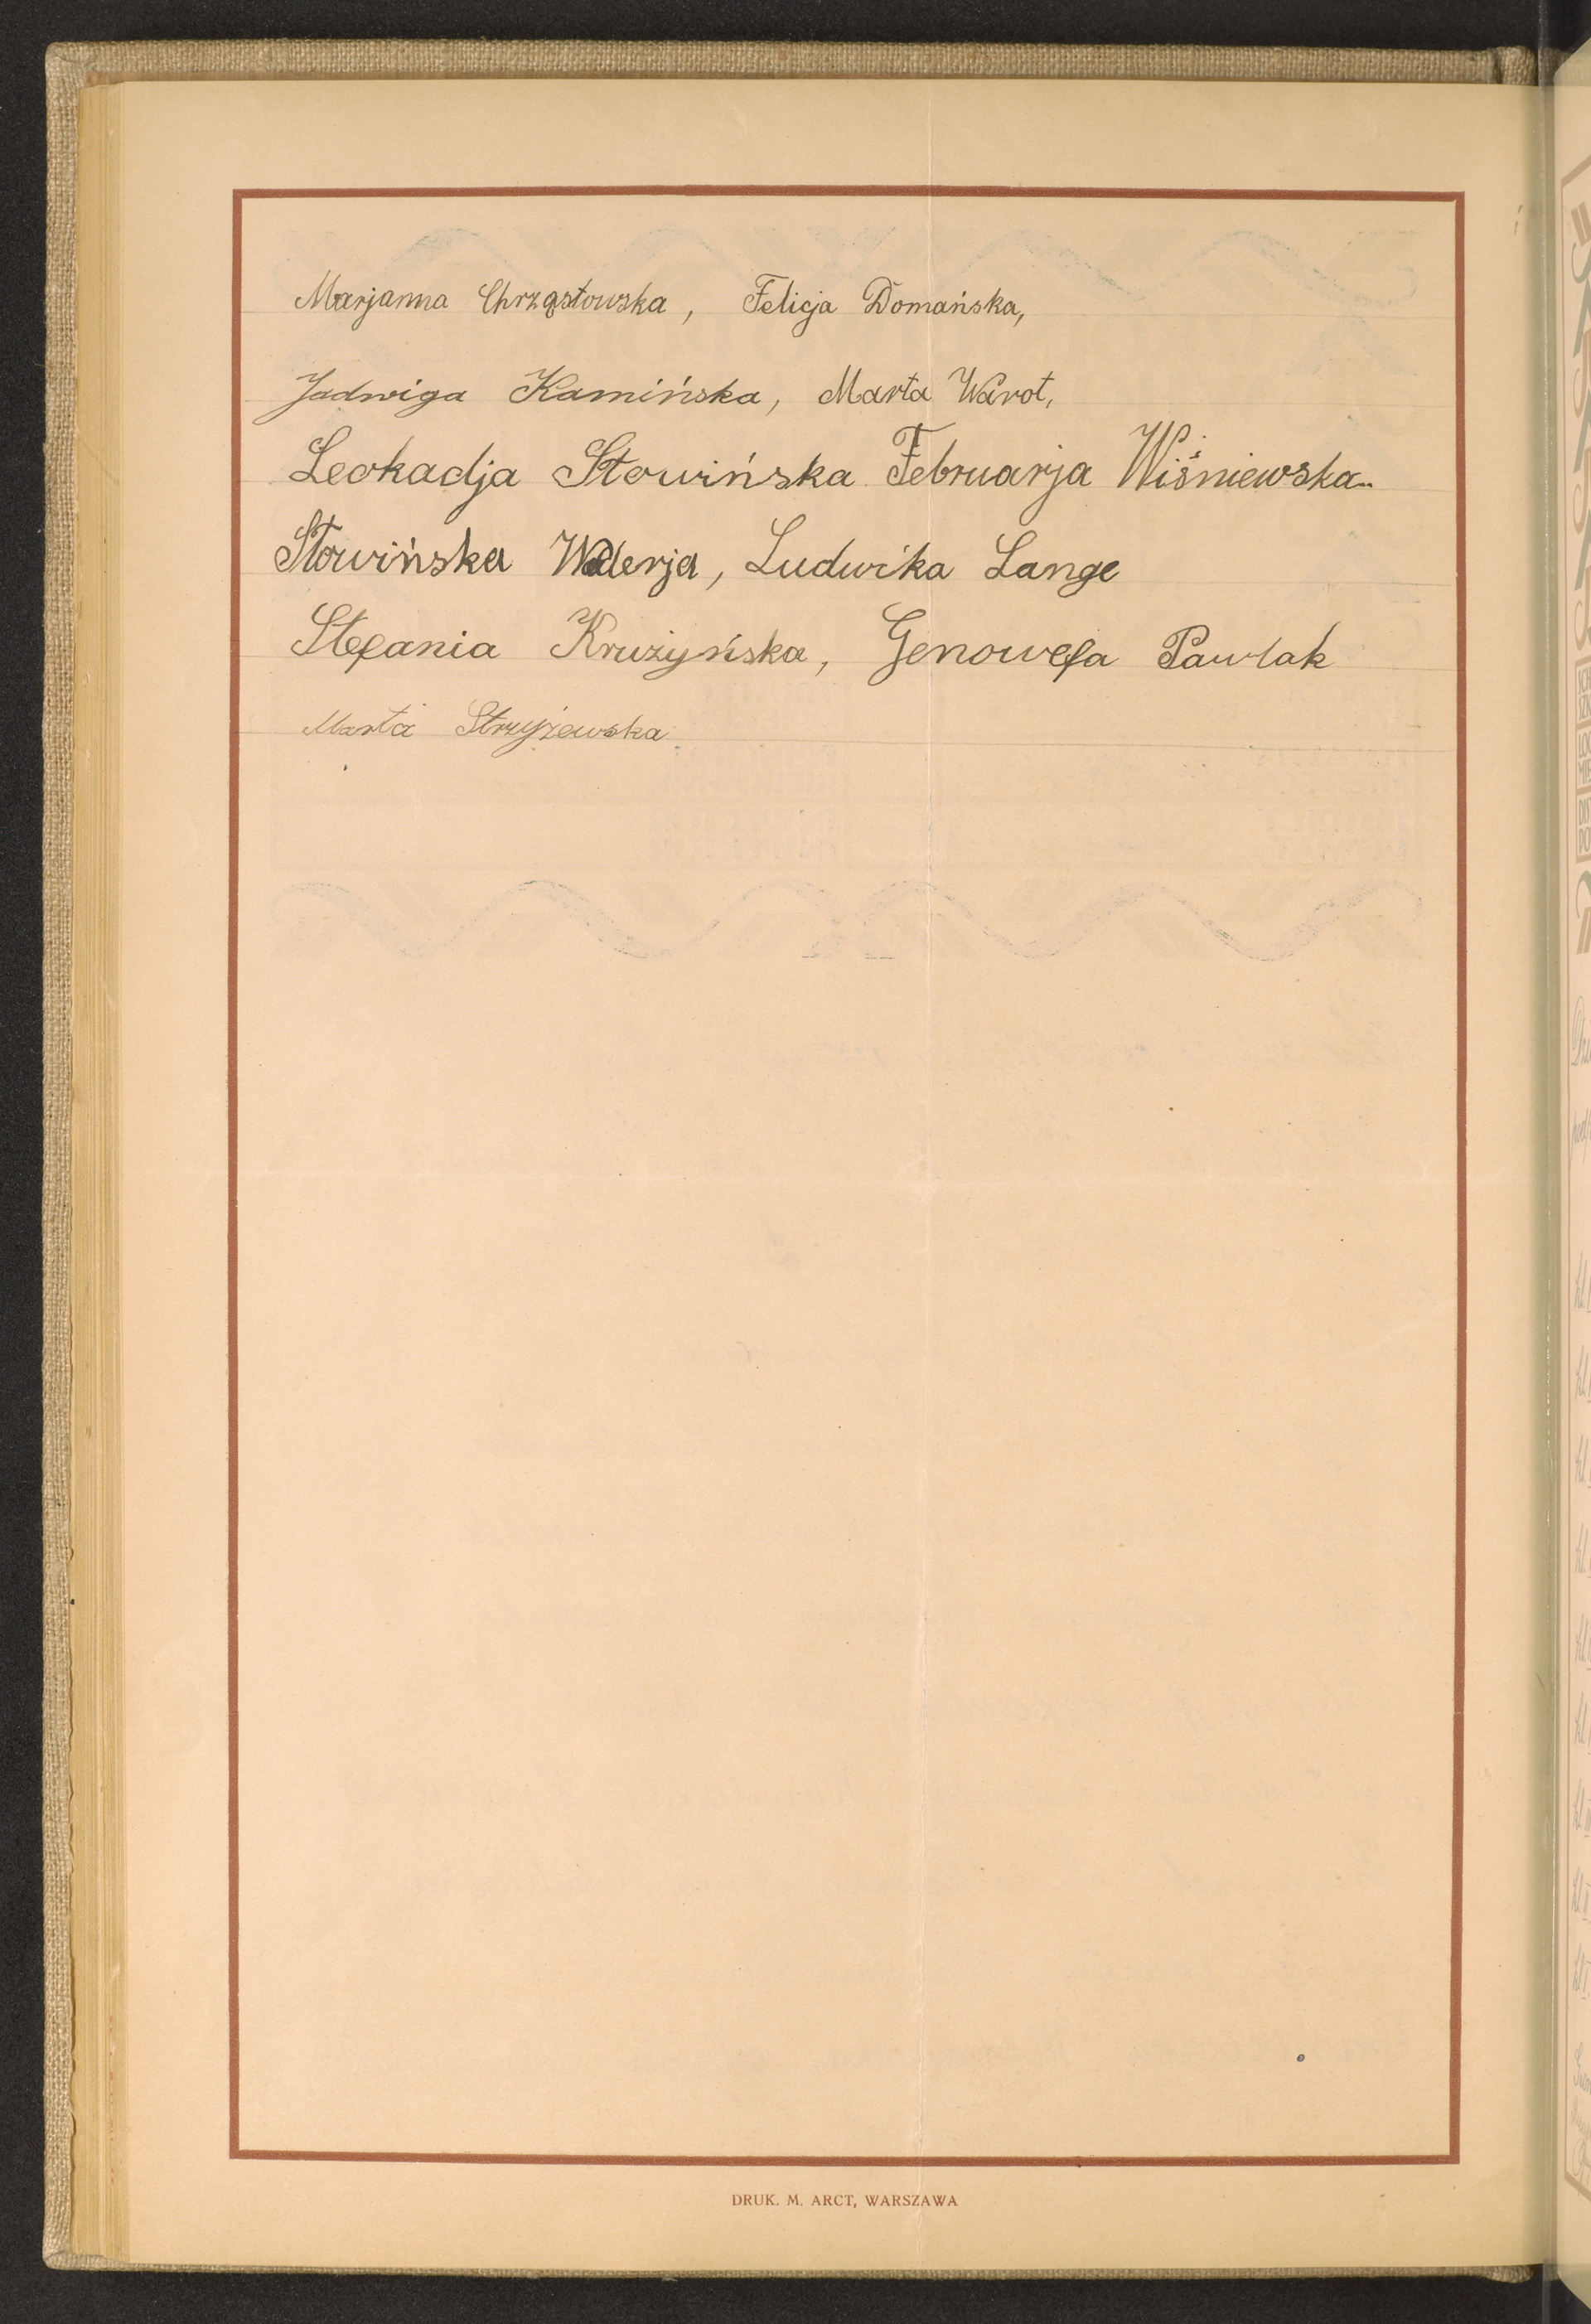 Marjanna Chrząstowska, Felicja Domańska,
Jadwiga Kamińska, Marta Warot,
Leokadja Słowińska Februarja Wiśniewska.
Słowińska Walerja, Ludwika Lange
Stefania Krużyńska, Genowefa Pawlak
Marta Stryjewska
DRUK. M. ARCT, WARSZAWA